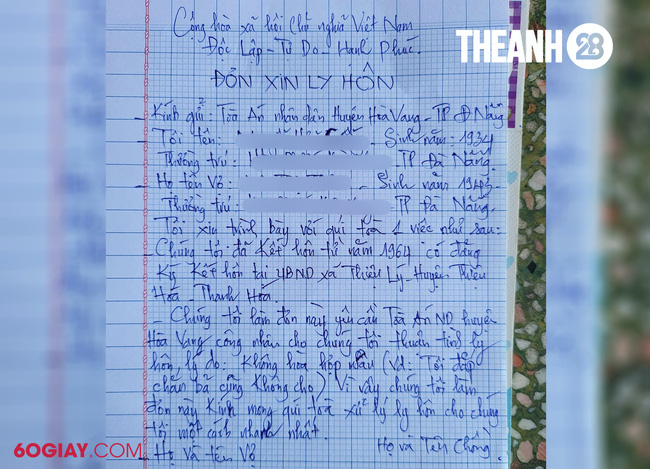 Cộng hòa xã hội Chủ nghĩa Việt Nam
Độc Lập - Tự Do - Hạnh Phúc.
THEANH28
ĐƠN XIN LY HÔN
- Kính gửi: Tòa Án nhân dân Huyện Hòa Vang - TP Đ Nẵng
- Tôi tên: - Sinh năm: 1934
Thường trú: TP Đà Nẵng.
- Họ tên Vợ: - Sinh năm 1943.
Thường trú: TP Đà Nẵng.
Tôi xin trình bày với quí tòa 1 việc như sau:
- Chúng tôi đã Kết hôn từ năm 1964 có đăng
Ký Kết hôn tại UBND xã Thiệu Lý - Huyện Thiệu
Hóa - Thanh Hóa.
- Chúng tôi làm đơn này yêu cầu Tòa Án ND huyện
Hòa Vang công nhận cho chúng tôi thuận tình ly
hôn, lý do: Không hòa hợp nhau (Vd: Tôi đắp
chăn bà cũng không cho) Vì vậy chúng tôi làm
đơn này Kính mong quí tòa xử lý ly hôn cho chúng
tôi một cách nhanh nhất.
Họ và Tên Chồng
- Họ và tên Vợ
60GIAY.COM